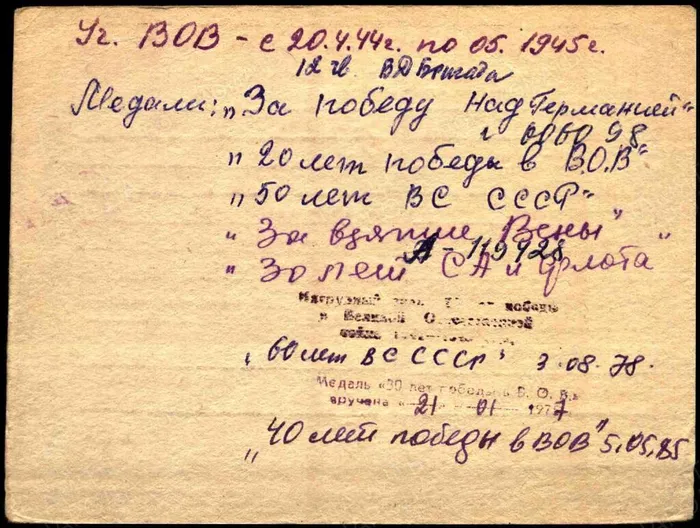 Уч. ВОВ - с 20.4.44г. по 05. 1945г.
12 гв. ВД Бригада
Медали: „За победу над Германией"
№ 0060 98
„20 лет победы в В.О.В"
„50 лет ВС СССР"
„За взятие Вены"
А - 119928
„30 лет СА и флота"
Нагрудный знак лет победы
в Великой Отечественной
войне
„60 лет ВС СССР" 3.08.78.
Медаль «30 лет победы в В. О. В.»
вручена «21» 01 1977
„40 лет победы в ВОВ" 5.05.85